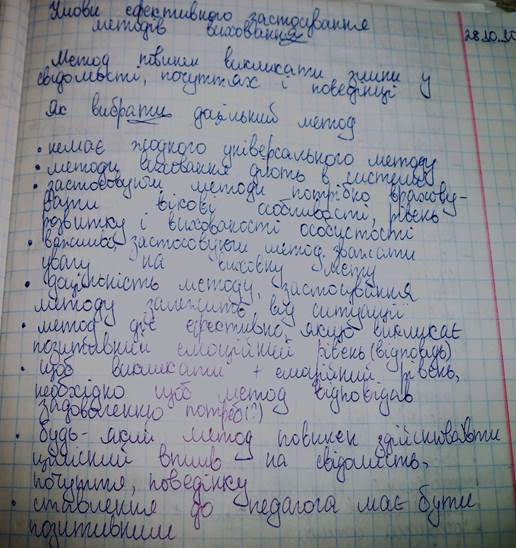 Умови ефективного застосування
методів виховання
28.10.
Метод повинен викликати зміни у
свідомості, почуттях і поведінці
Як вибрати доцільний метод
• немає жодного універсального методу
• методи виховання діють в системі
• застосовуючи методи потрібно врахову-
вати вікові особливості, рівень
розвитку і вихованості особистості
• важливо, застосовуючи метод, зважати
увагу на виховну мету
• доцільність методу, застосування
методу залежить від ситуації
• метод діє ефективно, якщо викликає
позитивний емоційний рівень (відповідь)
• щоб викликати + емоційний рівень,
необхідно щоб метод відповідав
задоволенню потреб(?)
• будь-який метод повинен здійснювати
цілісний вплив на свідомість,
почуття, поведінку
• ставлення до педагога має бути
позитивним